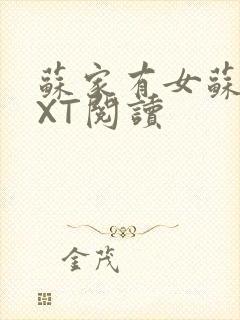 蘇家有女蘇
XT閱讀
金茂